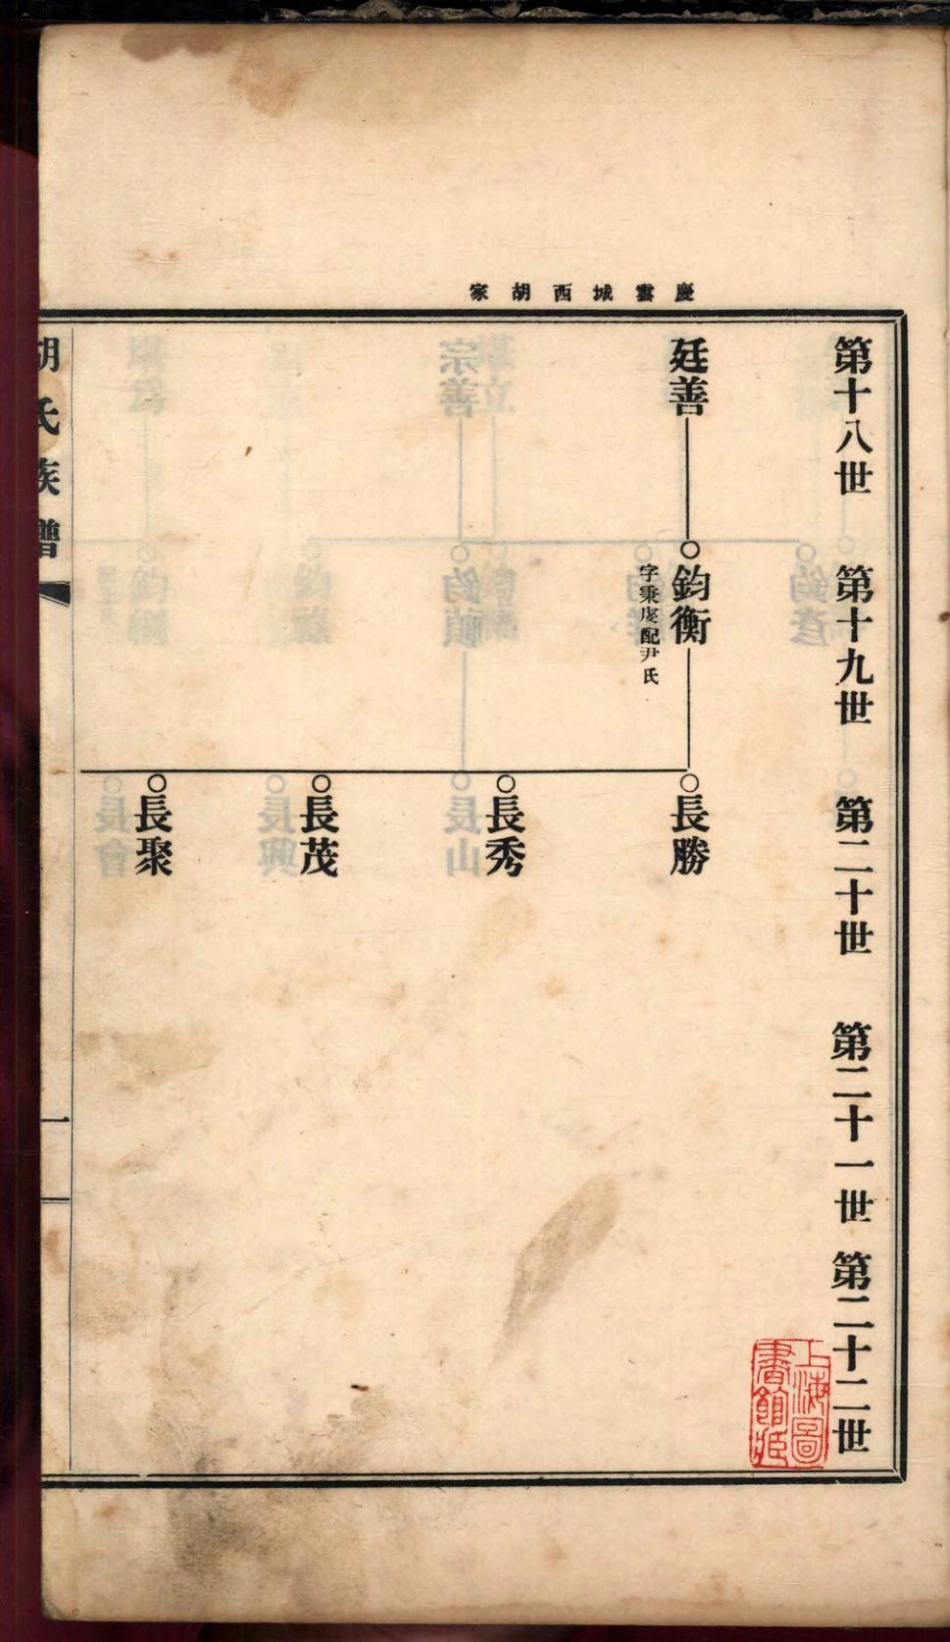 慶雲城西胡家
第十八世
第十九世
第二十世
第二十一世
第二十二世
廷善
鈞衡
字秉虔配尹氏
長勝
長秀
長茂
長聚
胡氏族譜
一
上海圖
書館藏